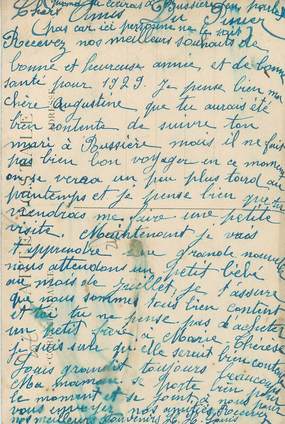 Quand tu écriras à Bussière n'en parle
pas car ici personne ne le sait
Chers Amis
Recevez nos meilleurs souhaits de
bonne et heureuse année et de bonne
santé pour 1929. Je pense bien ma
chère Augustine que tu aurais été
bien contente de suivre ton
mari à Bussière mais il ne fait
pas bien bon voyager en ce moment
on se verra un peu plus tard au
printemps et je pense bien que tu
viendras me faire une petite
visite. Maintenant je vais
t'apprendre une grande nouvelle
nous attendons un petit bébé
au mois de Juillet je t'assure
que nous sommes tous bien contents
et toi tu ne pense pas d'acheter
un petit frère à Marie Thérèse
je suis sûre qu'elle serait bien contente
Louis grandit toujours beaucoup
Ma maman se porte bien pour
le moment et se joint à nous pour
vous envoyer nos amitiés Recevez
nos meilleurs souvenirs Louis